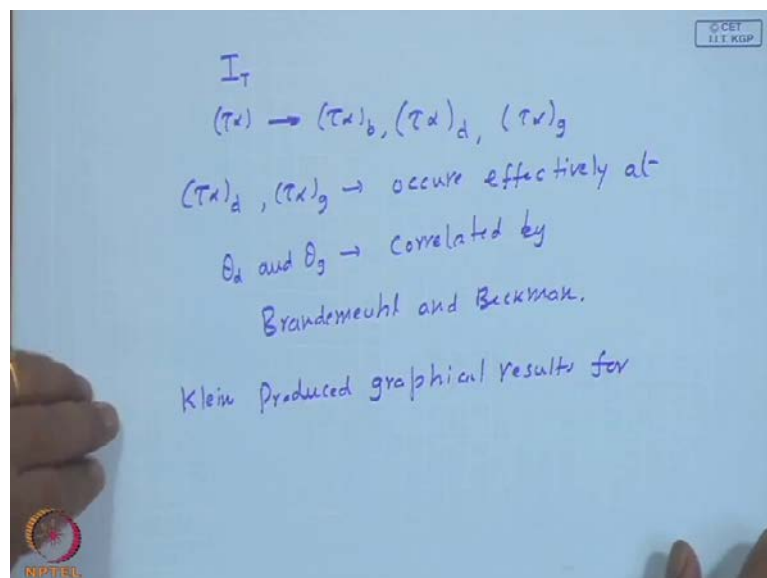 © CET
I.I.T. KGP
I_T
(τα) → (τα)_b, (τα)_d, (τα)_g
(τα)_d, (τα)_g → occure effectively at
θ_d and θ_g → Correlated by
Brandemeuhl and Beckman.
Klein Produced graphical results for
NPTEL